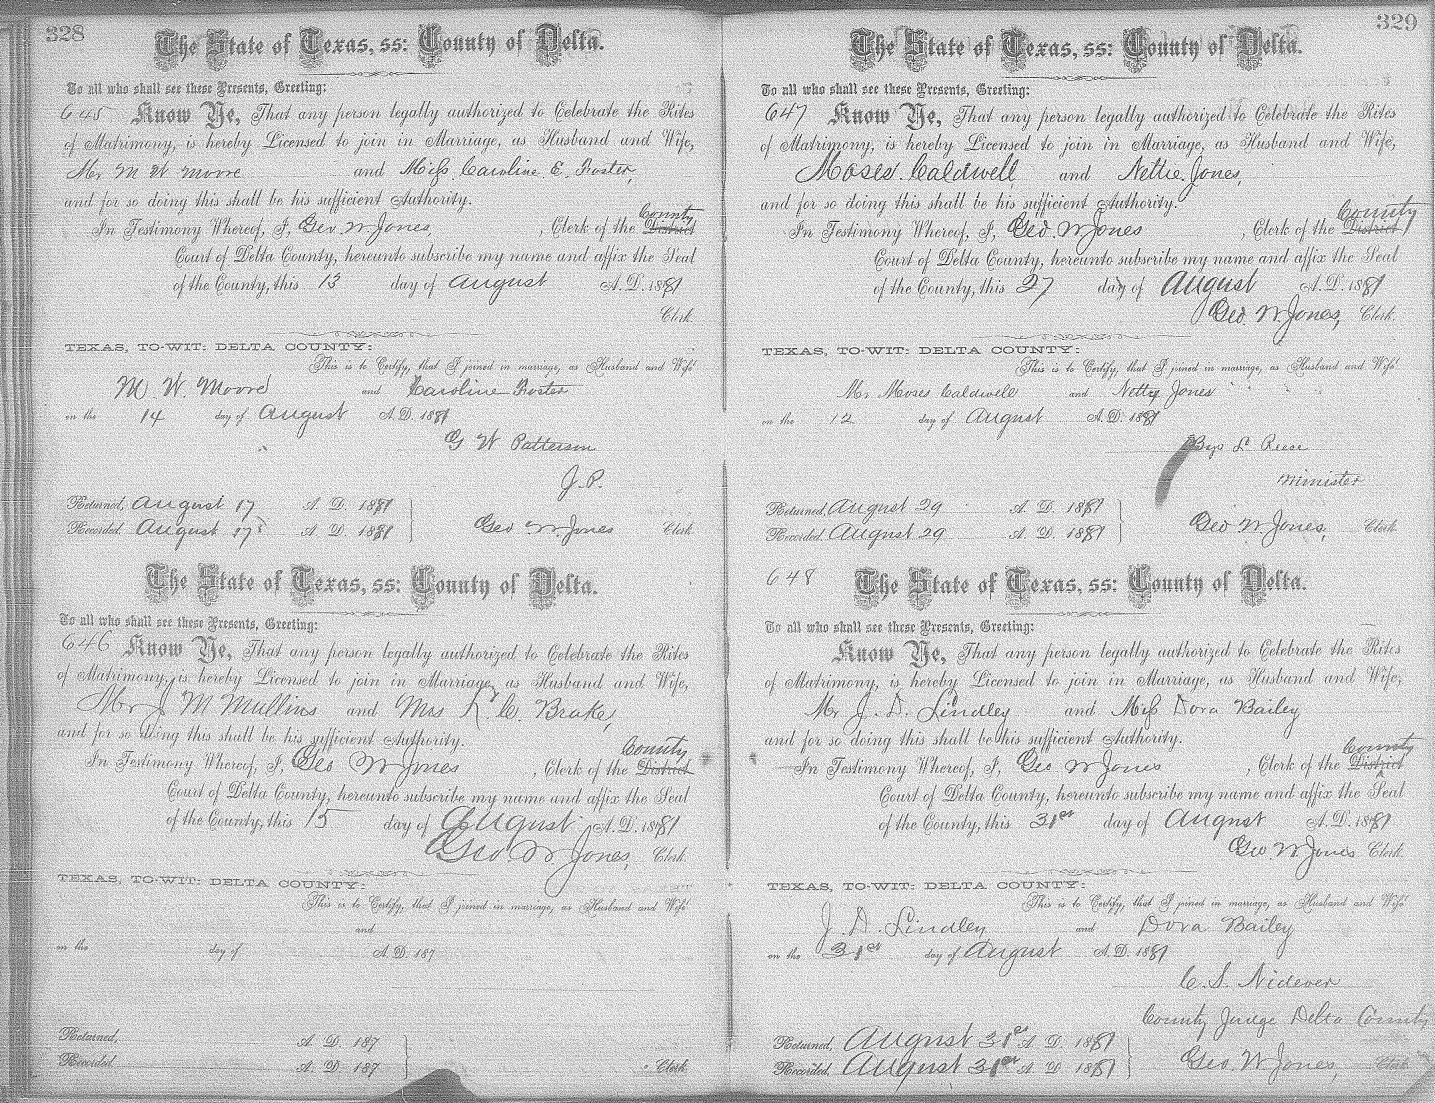 328
The State of Texas, ss: County of Delta.
To all who shall see these Presents, Greeting:
645 Know Ye, That any person legally authorized to Celebrate the Rites
of Matrimony, is hereby Licensed to join in Marriage, as Husband and Wife,
Mr M W Moore and Miss Caroline E. Foster,
and for so doing this shall be his sufficient Authority.
County
In Testimony Whereof, I, Geo. W Jones, , Clerk of the District
Court of Delta County, hereunto subscribe my name and affix the Seal
of the County, this 13 day of August A. D. 1881
Clerk.
TEXAS, TO-WIT: DELTA COUNTY:
This is to Certify, that I joined in marriage, as Husband and Wife
M. W. Moore and Caroline Foster
on the 14 day of August A. D. 1881
G W Patterson
J. P.
Returned, August 17 A. D. 1881
Recorded, August 17 A. D. 1881 Geo W. Jones Clerk
The State of Texas, ss: County of Delta.
To all who shall see these Presents, Greeting:
646 Know Ye, That any person legally authorized to Celebrate the Rites
of Matrimony, is hereby Licensed to join in Marriage, as Husband and Wife,
Mr J M Mullins and Mrs C. Brake,
and for so doing this shall be his sufficient Authority.
County
In Testimony Whereof, I, Geo W Jones , Clerk of the District
Court of Delta County, hereunto subscribe my name and affix the Seal
of the County, this 15 day of August A. D. 1881
Geo. W Jones, Clerk.
TEXAS, TO-WIT: DELTA COUNTY:
This is to Certify, that I joined in marriage, as Husband and Wife
and
on the day of A. D. 187
Returned, A. D. 187
Recorded, A. D. 187 Clerk
329
The State of Texas, ss: County of Delta.
To all who shall see these Presents, Greeting:
647 Know Ye, That any person legally authorized to Celebrate the Rites
of Matrimony, is hereby Licensed to join in Marriage, as Husband and Wife,
Moses. Caldwell, and Nettie. Jones,
and for so doing this shall be his sufficient Authority.
County
In Testimony Whereof, I, Geo. W Jones , Clerk of the District
Court of Delta County, hereunto subscribe my name and affix the Seal
of the County, this 27 day of August A. D. 1881
Geo. W Jones, Clerk.
TEXAS, TO-WIT: DELTA COUNTY:
This is to Certify, that I joined in marriage, as Husband and Wife
Mr Moses Caldwell and Netty Jones
on the 12 day of August A. D. 1881
Reese
Minister
Returned, August 29 A. D. 1881
Recorded, August 29 A. D. 1881 Geo W. Jones, Clerk
648 The State of Texas, ss: County of Delta.
To all who shall see these Presents, Greeting:
Know Ye, That any person legally authorized to Celebrate the Rites
of Matrimony, is hereby Licensed to join in Marriage, as Husband and Wife,
Mr J. D. Lindley and Miss Dora Bailey
and for so doing this shall be his sufficient Authority.
County
In Testimony Whereof, I, Geo W Jones , Clerk of the District
Court of Delta County, hereunto subscribe my name and affix the Seal
of the County, this 31st day of August A. D. 1881
Geo. W. Jones Clerk.
TEXAS, TO-WIT: DELTA COUNTY:
This is to Certify, that I joined in marriage, as Husband and Wife
J. D. Lindley and Dora Bailey
on the 31st day of August A. D. 1881
C. S. Nidever
County Judge Delta County
Returned, August 31st A. D. 1881
Recorded, August 31st A. D. 1881 Geo. W. Jones, Clerk